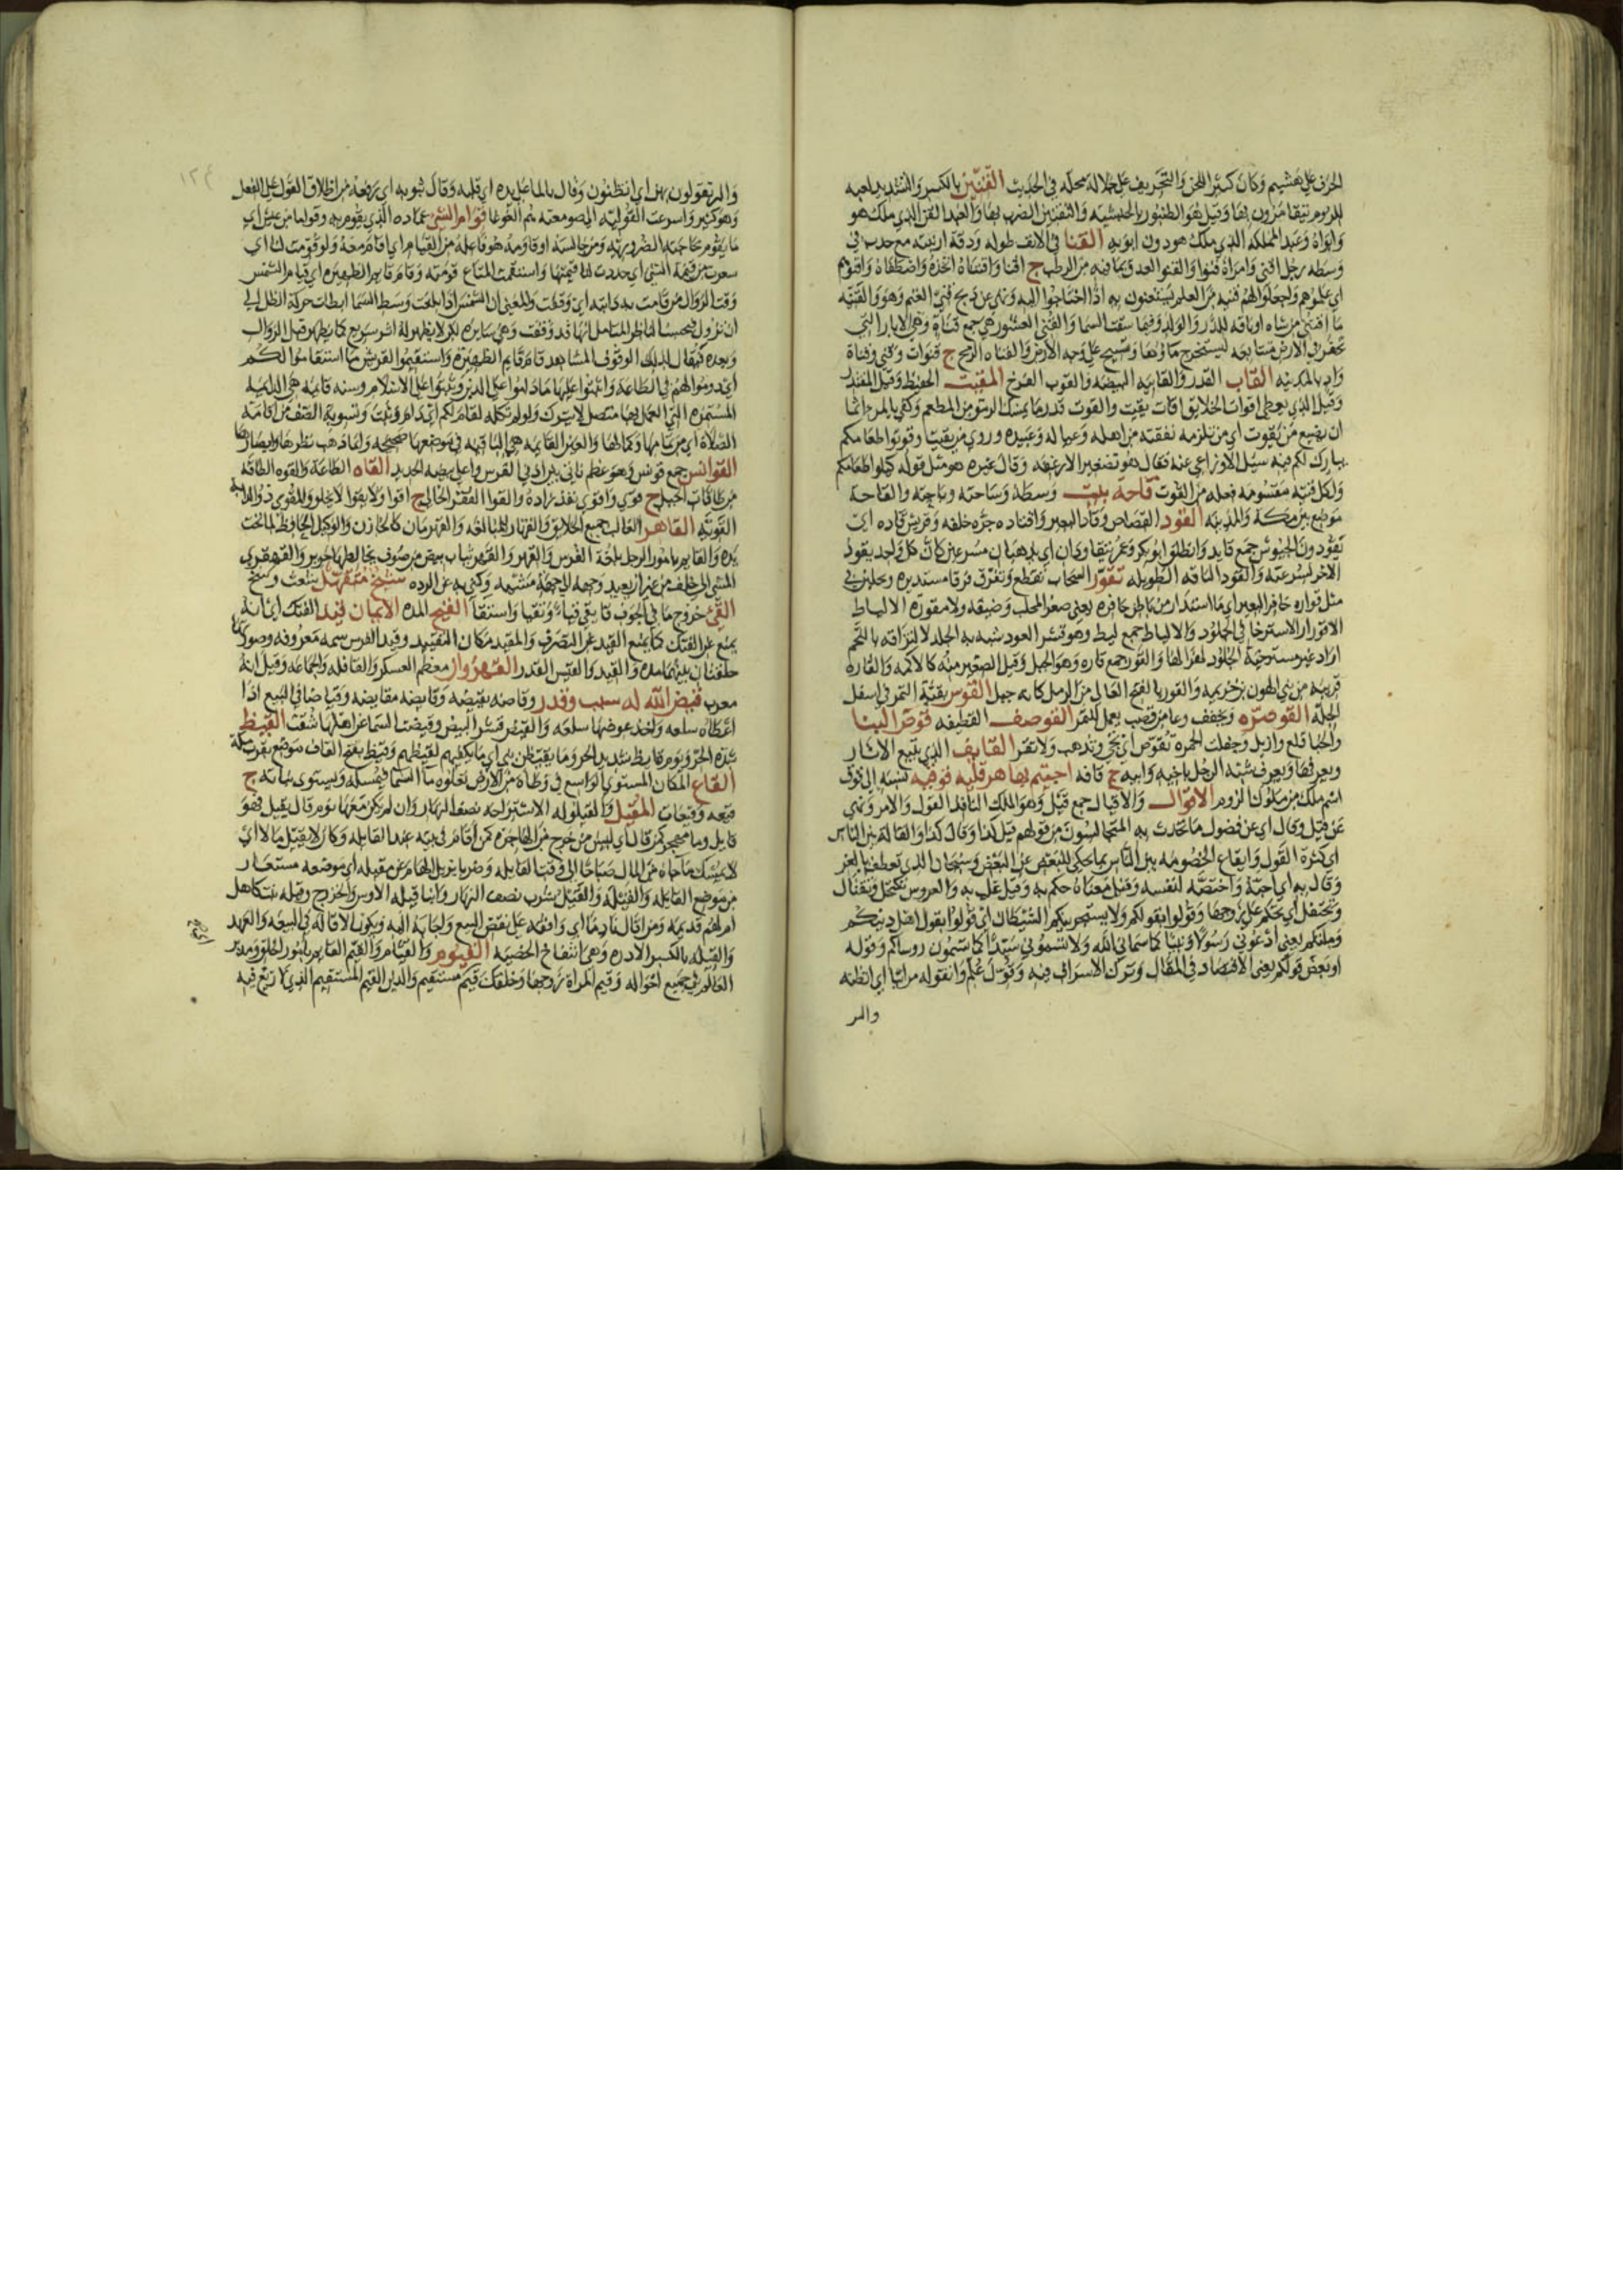 الحرف على هشيم وكان كثير اللحن والتحريف على جلالة محله في الحديث القنين بالكسر والتشديد لعبه
للروم يتقامرون بها وقيل هو الطنبور بالحبشيه والتقنين الضرب بها والعبد القن الذي ملك هو
وابواه وعبد المملكه الذي ملك هو دون ابويه القنا في الانف طوله ودقة ارنبته مع حدب في
وسطه رجل اقنى وامراة قنوا والقنو العذق بما فيه من الرطب ج اقنا واقتناه اتخذه واصطفاه واقنوهم
اي علموهم واجعلوا لهم قنيه من العلم يستغنون به اذا احتاجوا اليه ونهى عن ذبح قني الغنم وهو والقنيه
ما اقتني من شاه او ناقه للدر والولد وفيما سقت السما والقني العشور هي جمع قناة وهي الابار التي
تحفر في الارض متتابعه ليستخرج ماؤها ويسيح على وجه الارض والقناه الرمح ج قنوات وقني وقناة
واد بالمدينه القاب القدر والقابيه البيضه والقوب الفرخ المقيت الحفيظ وقيل المقتدر
وقيل الذي يعطي اقوات الخلايق اقات يقيت والقوت قدر ما يمسك الرمق من المطعم وكفى بالمرء اثما
ان يضيع من يقوت اي من تلزمه نفقته من اهله وعياله وعبيده وروي من يقيت وقوتوا طعامكم
يبارك لكم فيه سيل الاوزاعي عنه فقال هو تصغير الارغفه وقال غيره هو مثل قوله كيلوا طعامكم
ولكل قيتة مقسومه فعله من القوت قاحة بيت وسطه وساحته وباحته والقاحة
موضع بين مكة والمدينه القود القصاص وقاد البعير واقتاده جره خلفه وقريش قاده اي
يقودون الجيوش جمع قايد وانطلق ابو بكر وعمر يتقاودان اي يذهبان مسرعين كان كل واحد يقود
الاخر لسرعته والقود الناقه الطويله تقور السحاب تقطع وتفرق فرقا مستديره وحلبن في
مثل قواره حافر البعير اي ما استدار من باطن حافره يعني صغر المحلب وضيقه ولا مقورة الالياط
الاقورار الاسترخا في الجلود والالياط جمع ليط وهو قشر العود شبه به الجلد لالتزاقه باللحم
اراد غير مسترخية الجلود لهزالها والقور جمع قاره وهو الجبل وقيل الصغير منه كالاكمه والقاره
قبيله من بني الهون بن خزيمه والقوز بالفتح العالي من الرمل كانه جبل القوس بقية التمر في اسفل
الجلة القوصره ويخفف وعا من قصب يعمل للتمر القوصف القطيفه قوض البنا
والخبا قلع وازيل وجعلت الحمره تقوض اي تجي وتذهب ولا تقر القايف الذي يتبع الاثار
ويعرفها ويعرف شبه الرجل باخيه وابيه ج قافه اجيتم بها هرقليه قوقيه نسبه الى قوق
اسم ملك من ملوك الروم الاقوال والاقيال جمع قيل وهو الملك النافذ القول والامر ونهى
عن قيل وقال اي عن فضول ما يتحدث به المتجالسون من قولهم قيل كذا وقال كذا والقالة بين الناس
اي كثرة القول وايقاع الخصومه بين الناس بما يحكى للبعض عن البعض وسبحان الذي تعطف بالعز
وقال به اي احبه واختصه لنفسه وقيل معناه حكم به وقيل غلب به والعروس تكتحل وتقتال
وتحتفل اي تحتكم على زوجها وقولوا بقولكم ولا يستجرينكم الشيطان اي قولوا بقول اهل دينكم
وملتكم يعني ادعوني رسولا ونبيا كما سماني الله ولا تسموني سيدا كما تسمون روساكم وقوله
او بعض قولكم يعني الاقتصاد في المقال وترك الاسراف فيه وقول علم وانقوله مرائيا اي انظنه
والبر
١٢٤
والبر تقولون بهن اي اتظنون وقال بالما على يده اي قلبه وقال بثوبه اي رفعه من اطلاق القول على الفعل
وهو كثير واسرعت القوليه الى صومعته هم الغوغا قوام الشي عماده الذي يقوم به وقواما من عيش اي
ما يقوم بحاجته الضروريه ومن جالسه او قاومه هو فاعله من القيام اي اقام معه ولو قومت لنا اي
سعرت من قيمة الشي اي حددت لنا قيمتها واستقمت المتاع قومته وقام قايم الظهيره اي قيام الشمس
وقت الزوال من قامت به دابته اي وقفت والمعنى ان الشمس اذا بلغت وسط السما ابطات حركة الظل الى
ان تزول فيحسب الناظر المتامل انها قد وقفت وهي سايره لكن لا يظهر له اثر سريع كما يظهر قبل الزوال
وبعده فيقال لذلك الوقوف المشاهد قام قايم الظهيره واستقيموا لقريش ما استقاموا لكم
اي دوموا لهم في الطاعة واثبتوا عليها ما داموا على الدين وثبتوا على الاسلام وسنه قايمه هي الدايمه
المستمره التي العمل بها متصل لا يترك ولو لم تكله لقام لكم اي دام وثبت وتسوية الصف من اقامة
الصلاة اي من تمامها وكمالها والعين القايمه هي الباقيه في موضعها صحيحه وانما ذهب نظرها وابصارها
القوانس جمع قونس وهو عظم ناتئ بين اذني الفرس واعلى بيضه الحديد القاه الطاعة والقوه الطاقه
من طاقات الحبل ج قوى واقوى نفد زاده والقوا القفر الخالي ج اقوا ولا يقوا لا يخلو والمقوي ذو الدابه
القويه القاهر الغالب جميع الخلايق والقهار للمبالغه والقهرمان كالخازن والوكيل الحافظ لما تحت
يده والقايم بامور الرجل بلغة الفرس والقهز والقهز ثياب بيض من صوف يخالطها حرير والقهقرى
المشي الى خلف من غير ان يعيد وجهه الى جهة مشيه وكني به عن الرده شيخ متقهل شعث وسخ
القيء خروج ما في الجوف قا يقي قيا وتقيا واستقا القيح المده الايمان قيد الفتك اي انه
يمنع عن الفتك كما يمنع القيد عن التصرف والمقيد مكان التقييد وقيد الفرس سمه معروفه وصورتها
حلقتان بينهما مده والقيد والقيس القدر القيروان معظم العسكر والقافله والجماعه وقيل انه
معرب قيض الله له سبب وقدر وقاضه يقيضه وقايضه مقايضه وقياضا في البيع اذا
اعطاه سلعه واخذ عوضها سلعه والقيض قشر البيض وقيضت السما عن اهلها شقت القيظ
شده الحر ويوم قايظ شديد الحر وما يقيظن بني اي ما يكفيهم لقيظهم وقيظ بفتح القاف موضع بقرب مكة
القاع المكان المستوي الواسع في وطاة من الارض يعلوه ما السما فيمسكه ويستوي نباته ج
قيعه وقيعان المقيل والقيلوله الاستراحه نصف النهار وان لم يكن معها نوم قال يقيل فهو
قايل وما مهجر كمن قال اي ليس من خرج في الهاجره كمن اقام في بيته عند القايله وكان لا يقيل مالا اي
لا يمسك ما جاه من المال صباحا الى وقت القايله وضربا يزيل الهام عن مقيله اي موضعه مستعار
من موضع القايله والقيلة والقيل شرب نصف النهار وابنا قيله الاوس والخزرج وقيله بنت كاهل
ام لهم قديمه ومن اقال نادما اي وافقه على نقض البيع واجابه اليه ويكون الاقالة في البيعه والعهد
والقيله بالكسر الادره وهي انتفاخ الخصيه القيوم والقيام والقيم القايم بامور الخلق ومدبر
العالم في جميع احواله وقيم المراة زوجها وخلقك قيم مستقيم والدين القيم المستقيم الذي لا زيغ فيه